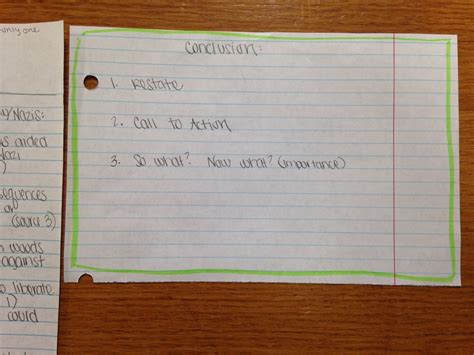 only one
Nazis:
aided
Nazi
)
sequences
or
(source 3)
woods
against
liberate
1)
could
Conclusion:
1. Restate
2. Call to Action
3. So what? Now what? (importance)